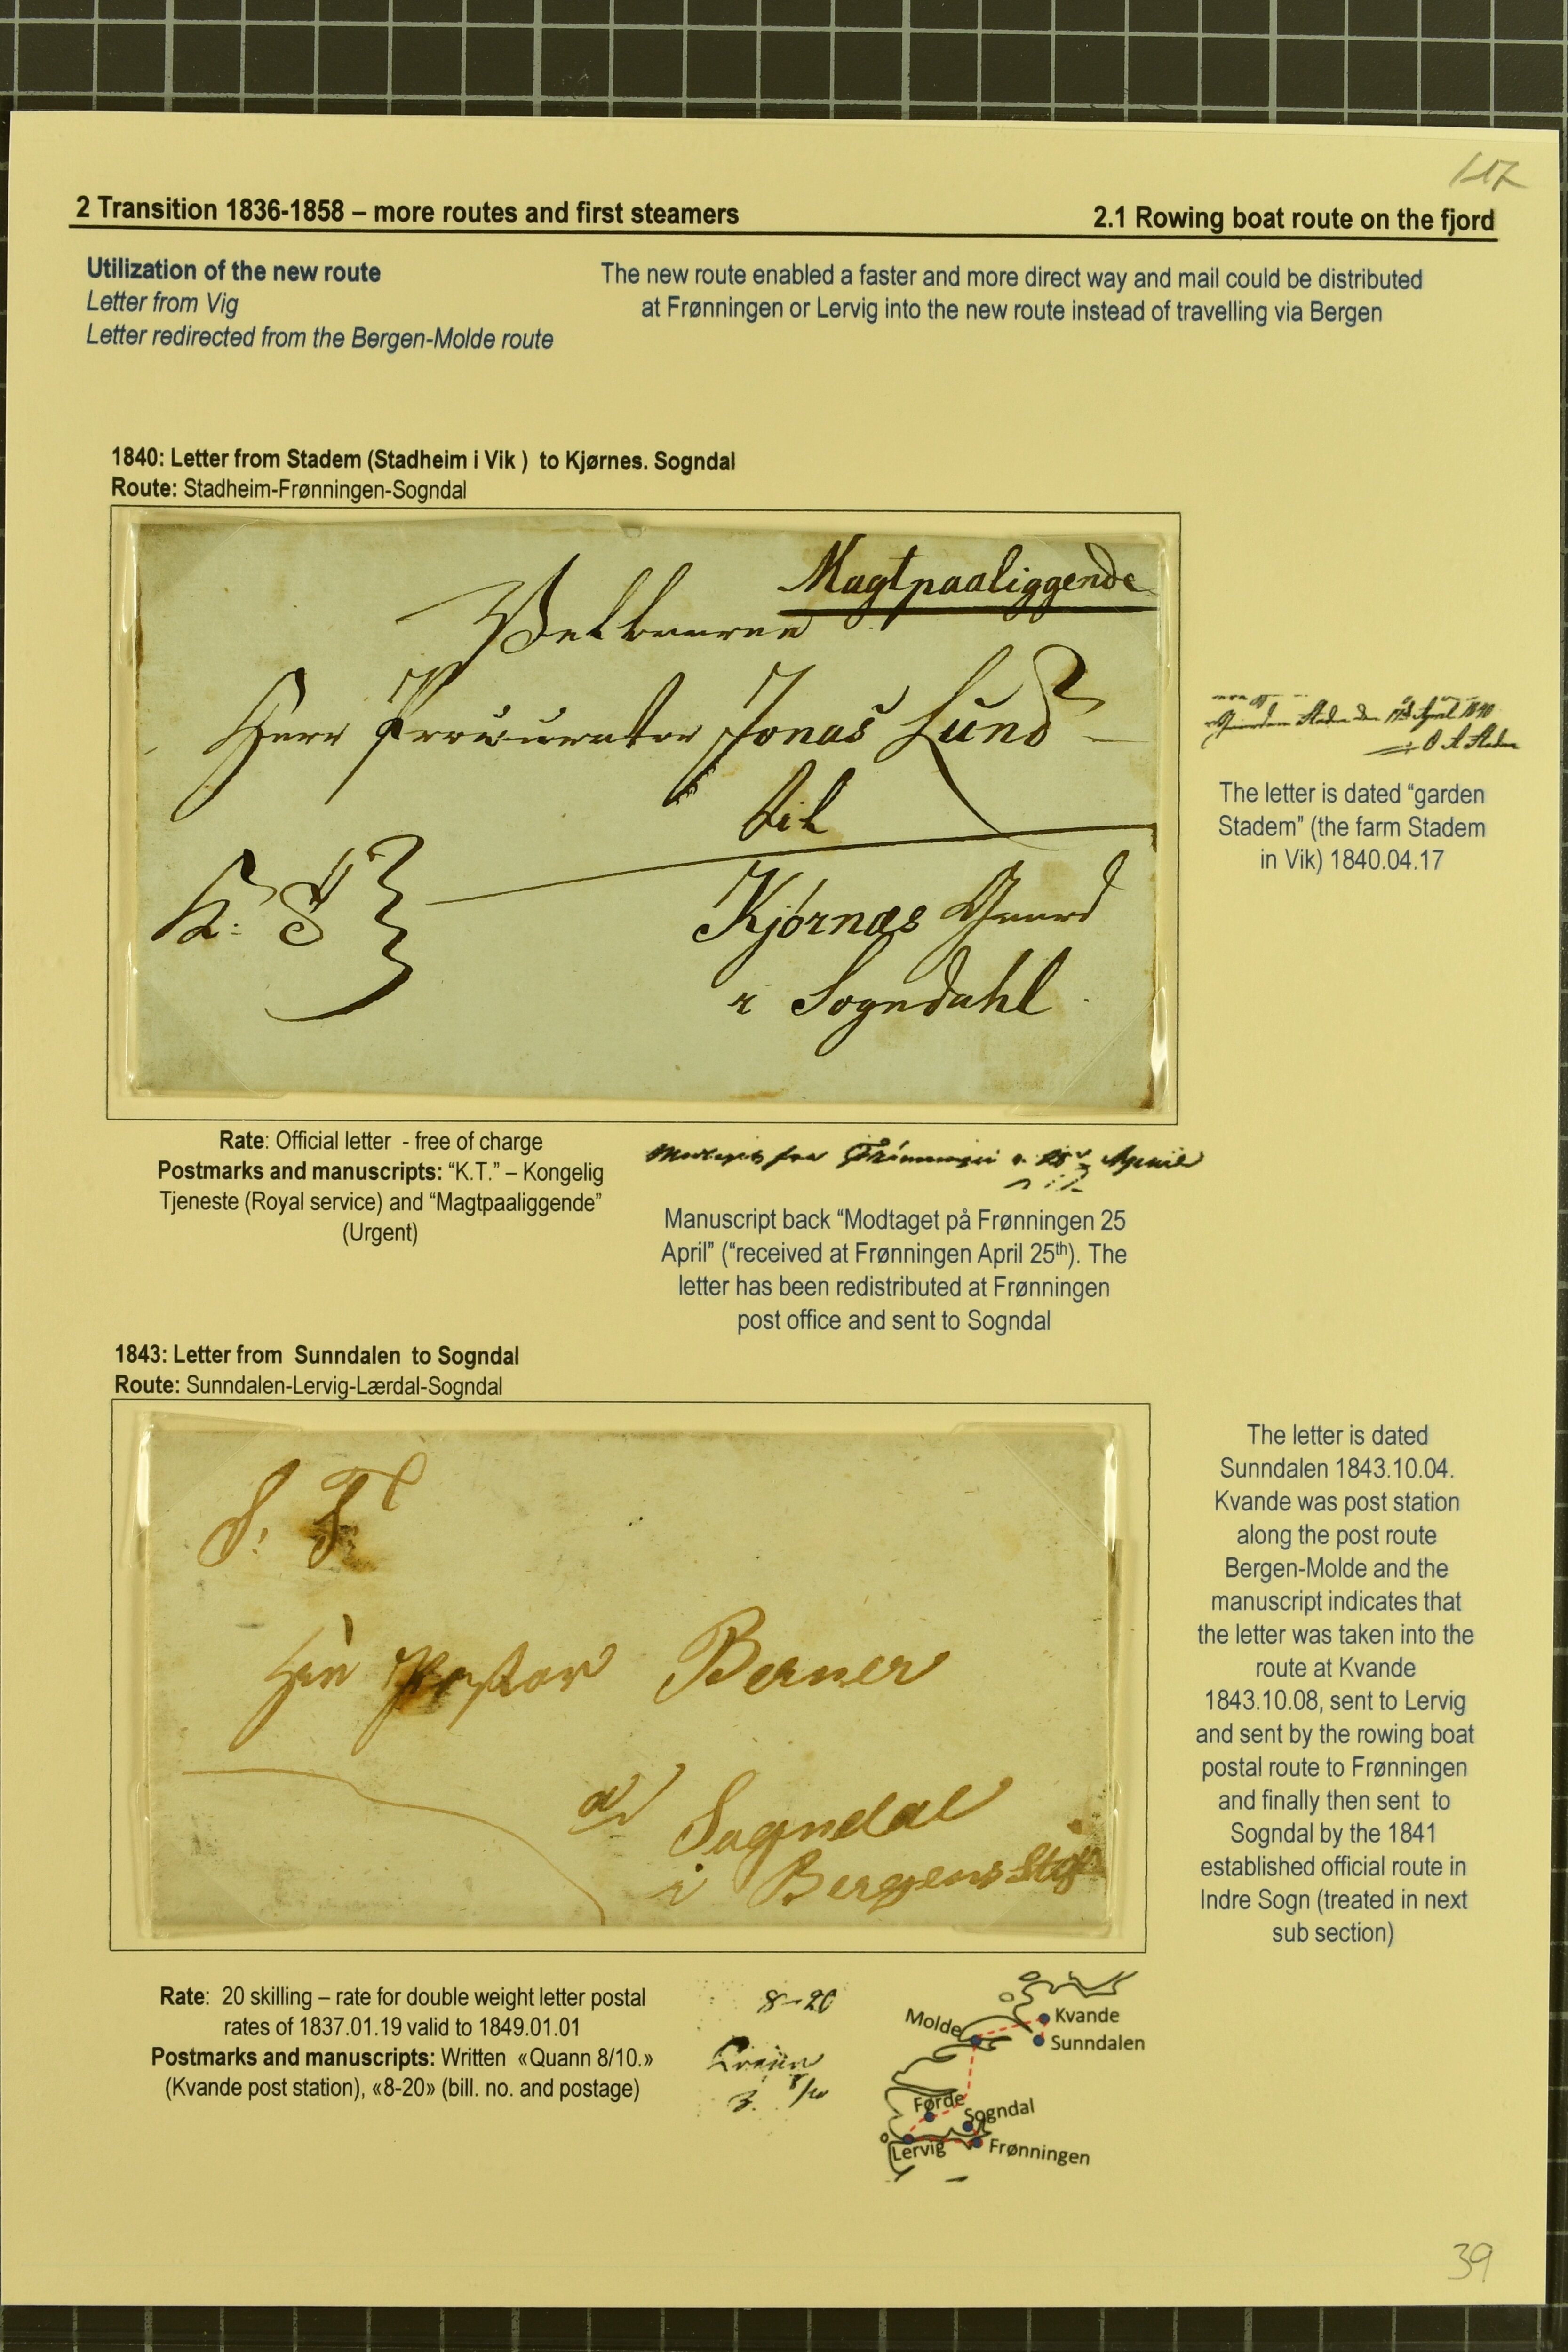 2 Transition 1836-1858 – more routes and first steamers
2.1 Rowing boat route on the fjord
Utilization of the new route
Letter from Vig
Letter redirected from the Bergen-Molde route
The new route enabled a faster and more direct way and mail could be distributed
at Frønningen or Lervig into the new route instead of travelling via Bergen
1840: Letter from Stadem (Stadheim i Vik ) to Kjørnes. Sogndal
Route: Stadheim-Frønningen-Sogndal
Magtpaaliggende
Velbaarne
Herr Procurator Jonas Lund
til
K. T.
Kjörnæs Gaard
i Sogndahl
The letter is dated “garden
Stadem” (the farm Stadem
in Vik) 1840.04.17
Rate: Official letter - free of charge
Postmarks and manuscripts: “K.T.” – Kongelig
Tjeneste (Royal service) and “Magtpaaliggende”
(Urgent)
Manuscript back “Modtaget på Frønningen 25
April” (“received at Frønningen April 25th). The
letter has been redistributed at Frønningen
post office and sent to Sogndal
1843: Letter from Sunndalen to Sogndal
Route: Sunndalen-Lervig-Lærdal-Sogndal
S. T.
Hr Pastor Berner
Sogndal
i Bergens Stift
The letter is dated
Sunndalen 1843.10.04.
Kvande was post station
along the post route
Bergen-Molde and the
manuscript indicates that
the letter was taken into the
route at Kvande
1843.10.08, sent to Lervig
and sent by the rowing boat
postal route to Frønningen
and finally then sent to
Sogndal by the 1841
established official route in
Indre Sogn (treated in next
sub section)
Rate: 20 skilling – rate for double weight letter postal
rates of 1837.01.19 valid to 1849.01.01
Postmarks and manuscripts: Written «Quann 8/10.»
(Kvande post station), «8-20» (bill. no. and postage)
8-20
8/10
Molde
Kvande
Sunndalen
Førde
Sogndal
Lervig
Frønningen
39